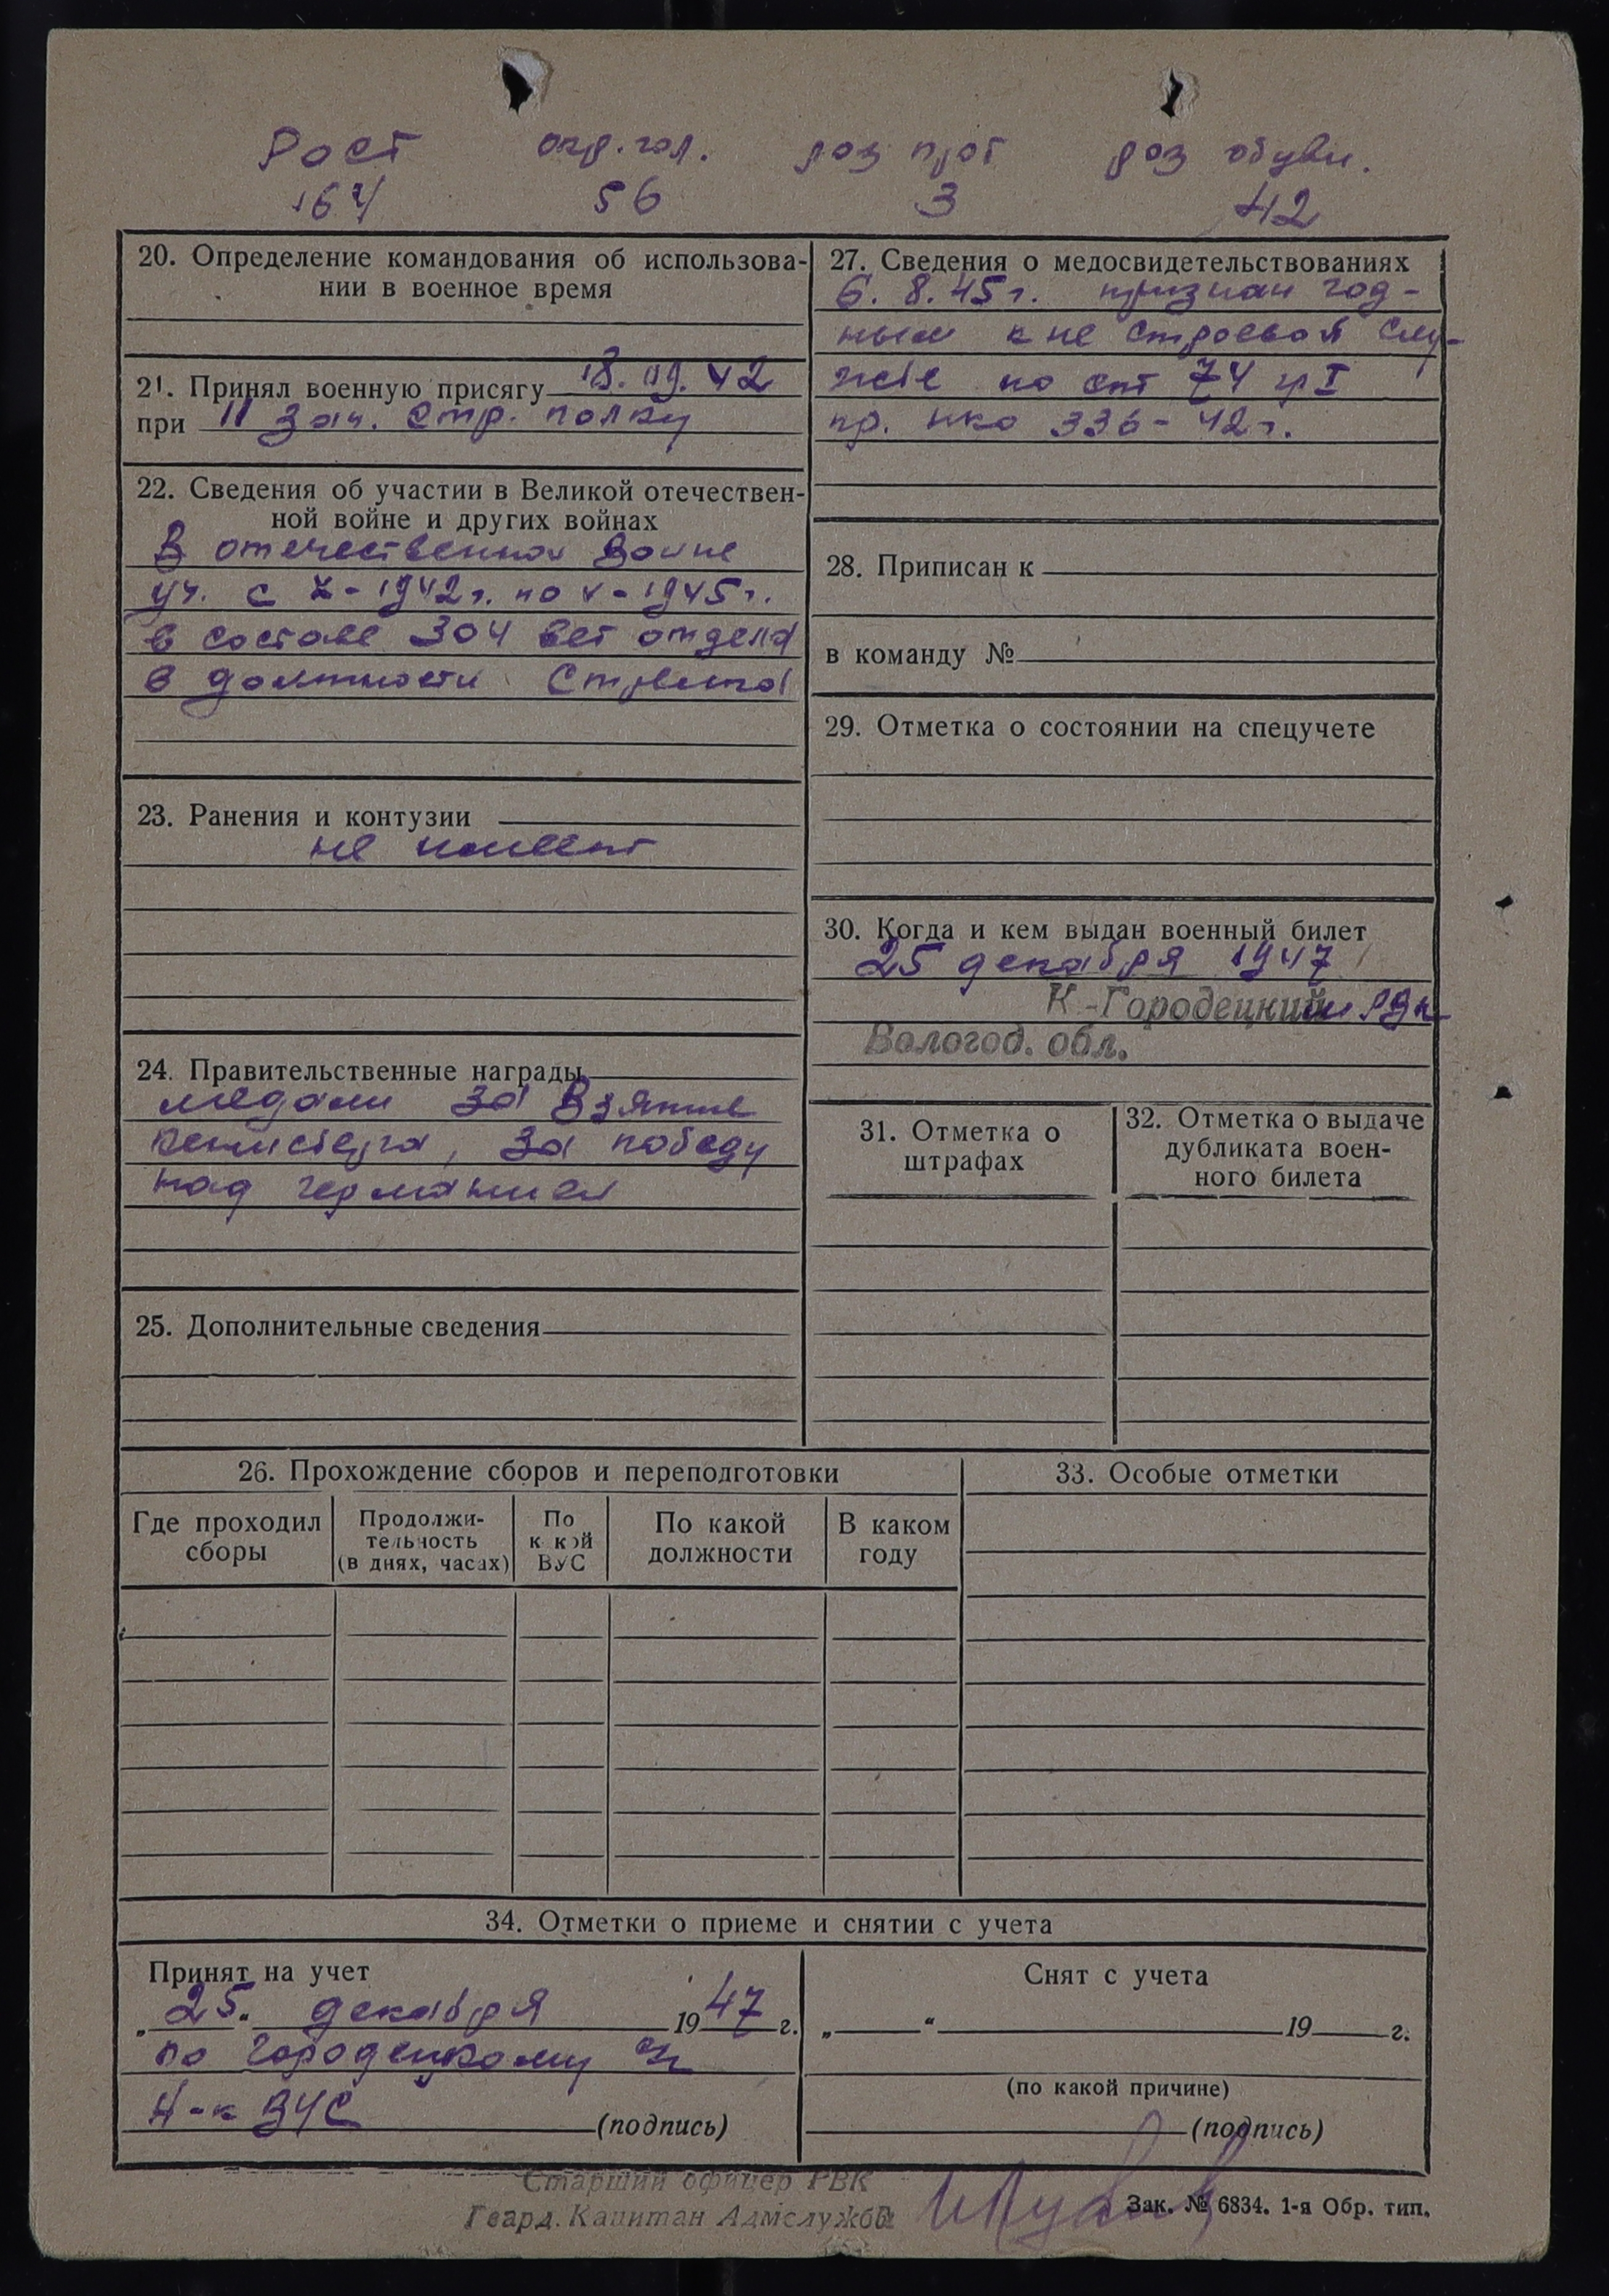 Рост окр. гол. раз прот раз обуви.
164 56 3 42
20. Определение командования об использова-
нии в военное время
21. Принял военную присягу 18.09.42
при 11 зап. стр. полку
22. Сведения об участии в Великой отечествен-
ной войне и других войнах
В отечественной войне
уч. с X-1942г. по V-1945г.
в составе 304 вет отдела
в должности Стрелка
23. Ранения и контузии
не имеет
24. Правительственные награды
медали за Взятие
кенисберга, за победу
над германией
25. Дополнительные сведения
27. Сведения о медосвидетельствованиях
6.8.45г. признан год-
ным к не строевой слу-
жбе по ст 74 гр I
пр. нко 336-42г.
28. Приписан к
в команду №
29. Отметка о состоянии на спецучете
30. Когда и кем выдан военный билет
25 декабря 1947
К.-Городецким РВК
Вологод. обл.
31. Отметка о
штрафах
32. Отметка о выдаче
дубликата воен-
ного билета
26. Прохождение сборов и переподготовки
Где проходил
сборы
Продолжи-
тельность
(в днях, часах)
По
какой
ВУС
По какой
должности
В каком
году
33. Особые отметки
34. Отметки о приеме и снятии с учета
Принят на учет
„25" декабря 1947 г.
по Городецкому
Н-к ВУС (подпись)
Снят с учета
„ " 19 г.
(по какой причине)
(подпись)
Старший офицер РВК
Гвард. Капитан Адмслужбы
Зак. № 6834. 1-я Обр. тип.